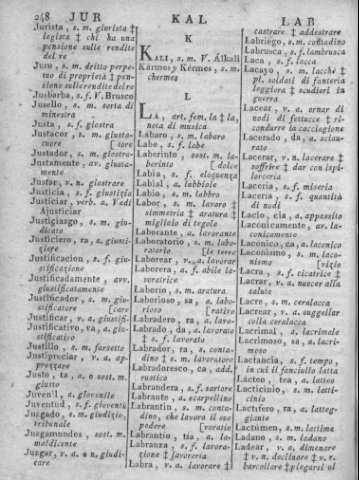 248 JUR
KAL
LAB
Jurista, s. m. giurista ‡
legista ‡ chi ha una
pensione sulle rendite
del re
Juro, s. m. dritto perpe-
tuo di proprietà ‡ pen-
sione sulle rendite del re
Jusbarba, s. f. V. Brusco
Jusello, s. m. sorta di
minestra
Justa, s. f. giostra
Justacor, s. m. giusta-
cuore [tore
Justador, s. m. giostra-
Justamente, av. giusta-
mente
Justar, v. n. giostrare
Justicia, s. f. giustizia
Justiciar, verb. a. V. di
Ajusticiar
Justiciazgo, s. m. giu-
dicato
Justiciero, ra, a. giusti-
ziere
Justificacion, s. f. giu-
stificazione
Justificadamente, avv.
giustificamente
Justificador, s. m. giu-
stificatore [care
Justificar, v. a. giustifi-
Justificativo, va, a. giu-
stificativo
Justillo, s. m. farsetto
Justipreciar, v. a. ap-
prezzare
Justo, ta, a. o sost. m.
giusto
Juvenil, a. giovenile
Juventud, s. f. gioventù
Juzgado, s. m. giudizio,
tribunale
Juzgamundos, sost. m.
maldicente
Juzgar, v. a. o n. giudi-
care
K
KALI, s. m. V. Álkali
Kármes y Kérmes, s. m.
chermes
L
LA, art. fem. la ‡ la,
nota di musica
Lábaro, s. m. labaro
Labe, s. f. labe
Laberinto, sost. m. la-
berinto [dolce
Labia, s. f. eloquenza
Labial, a. labbiale
Labio, s. m. labbro
Labor, s. m. lavoro ‡
simmetria ‡ aratura ‡
migliaio di tegole
Laborante, a. lavorante
Laboratorio, s. m. labo-
ratorio [le terre
Laborear, v. a. lavorar
Laborera, a. f. abile la-
voratrice
Laborío, s. m. aratura
Laborioso, sa, a. labo-
rioso [ratìro
Labradero, ra, a. lavo-
Labrado, da, a. lavorato
‡ s. f. lavorìo
Labrador, ra, a. conta-
dino ‡ s. m. lavoratore
Labradoresco, ca, add.
rustico
Labrandera, s. f. sartore
Labrante, a. scarpellino
Labrantin, s. m. conta-
dino, che lavora il suo
podere
Labrantío, tía, a. la-
Labranza, s. f. lavora-
zione ‡ lavoreria
Labrar, v. a. lavorare ‡
castrare ‡ addestrare
Labriego, s. m. contadino
Labrusca, s. f. lambrusca
Laca, s. f. lacca
Lacayo, s. m. lacchè ‡
pl. soldati di fanteria
leggiera ‡ scudieri in
guerra
Lacear, v. a. ornar di
nodi di fettucce ‡ ri-
condurre la cacciagione
Lacerado, da, a. sciau-
rato
Lacerar, v. n. lacerare ‡
soffrire ‡ dar con ispi-
lorceria
Laceria, s. f. miseria
Lacería, s. f. quantità
di nodi
Lacio, cia, a. appassito
Laconicamente, av. la-
conicamente
Lacónico, ca, a. laconico
Laconismo, s. m. laco-
nismo [vizio
Lacra, s. f. cicatrice ‡
Lacrar, v. a. nuocer alla
salute
Lacre, s. m. ceralacca
Lacrear, v. a. suggellar
colla ceralacca
Lacrimal, a. lacrimale
Lacrimoso, sa, a. lacri-
moso
Lactancia, s. f. tempo,
in cui il fanciullo latta
Lácteo, tea, a. latteo
Lacticinio, s. m. latti-
cinio
Lactífero, ra, a. latteg-
giante
Lactúmen, s. m. lattime
Ladano, s. m. ledano
Ladear, v. a. dimenare
‡ v. n. declinare ‡ v. r.
barcollare ‡ piegarsi al